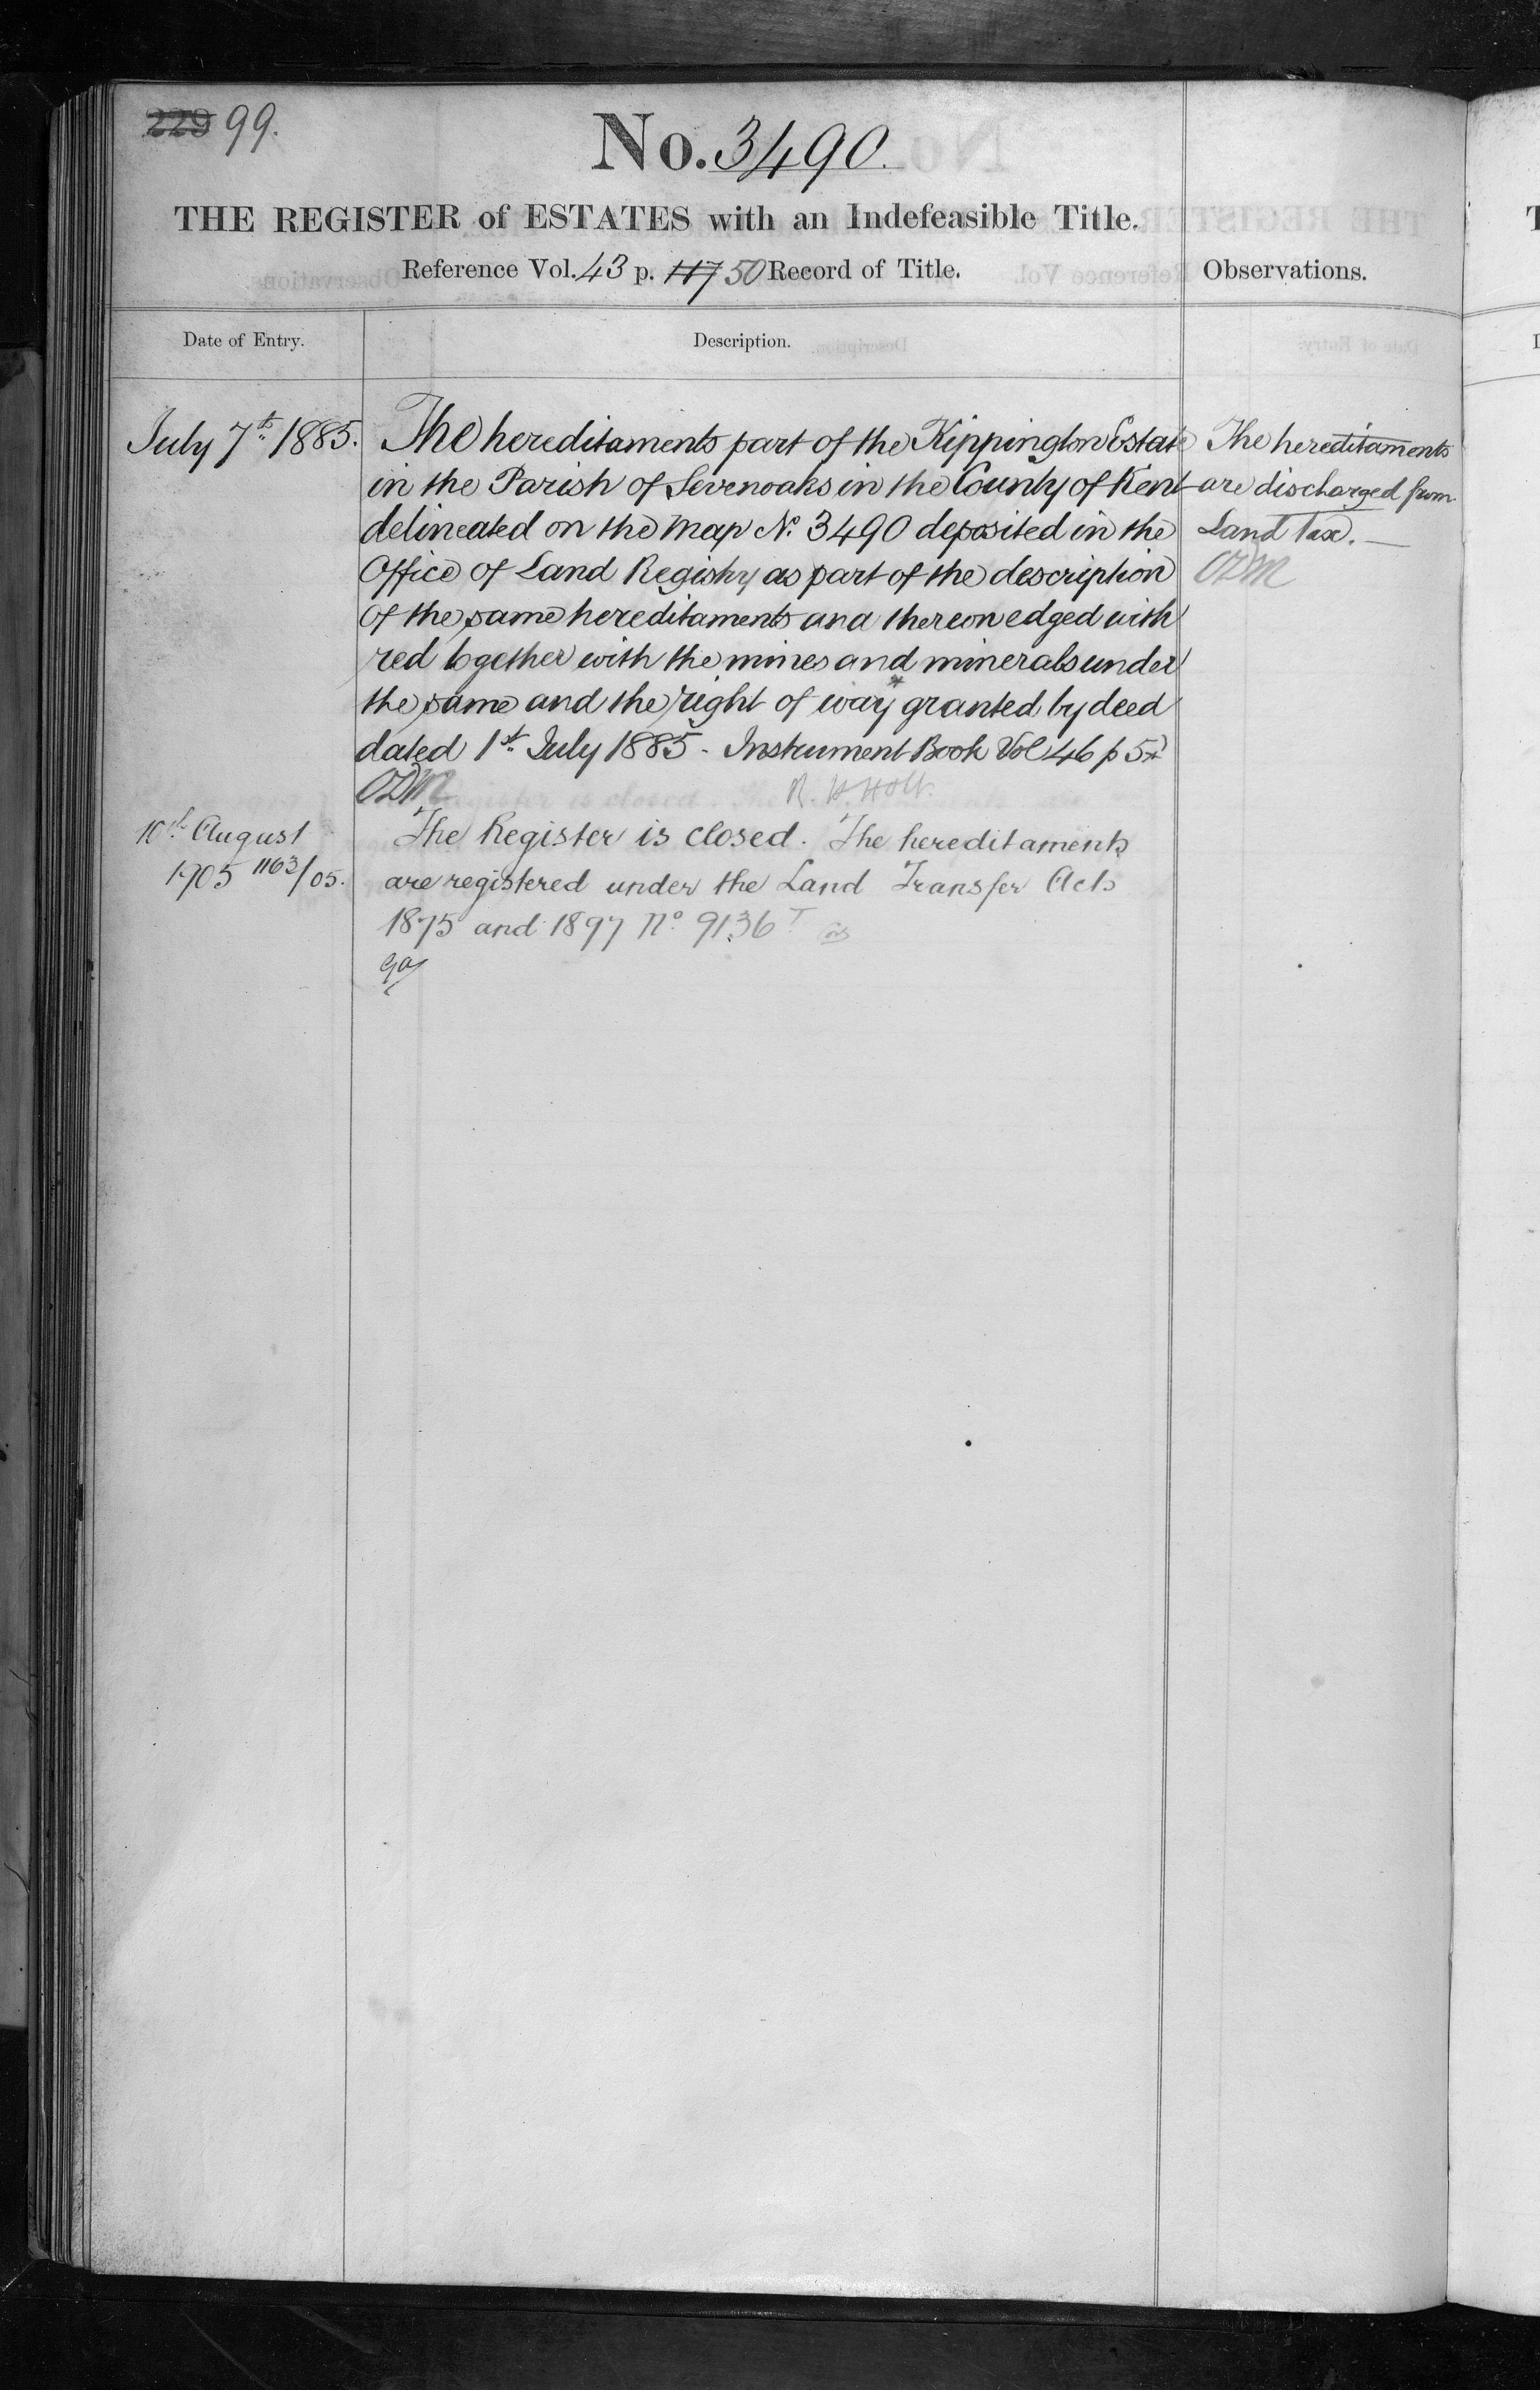 229 99.
No. 3490.
THE REGISTER of ESTATES with an Indefeasible Title.
Reference Vol. 43 p. 117 50 Record of Title.
Observations.
Date of Entry.
Description.
July 7th 1885.
The hereditaments part of the Kippington Estate
in the Parish of Sevenoaks in the County of Kent
delineated on the Map No. 3490 deposited in the
Office of Land Registry as part of the description
of the same hereditaments and thereon edged with
red together with the mines and minerals under
the same and the right of way* granted by deed
dated 1st July 1885 - Instrument Book Vol 46 p 5
R. H. Holt.
The hereditaments
are discharged from
Land Tax. —
10th August
1905 1163/05.
The Register is closed. The hereditaments
are registered under the Land Transfer Acts
1875 and 1897 No. 9136